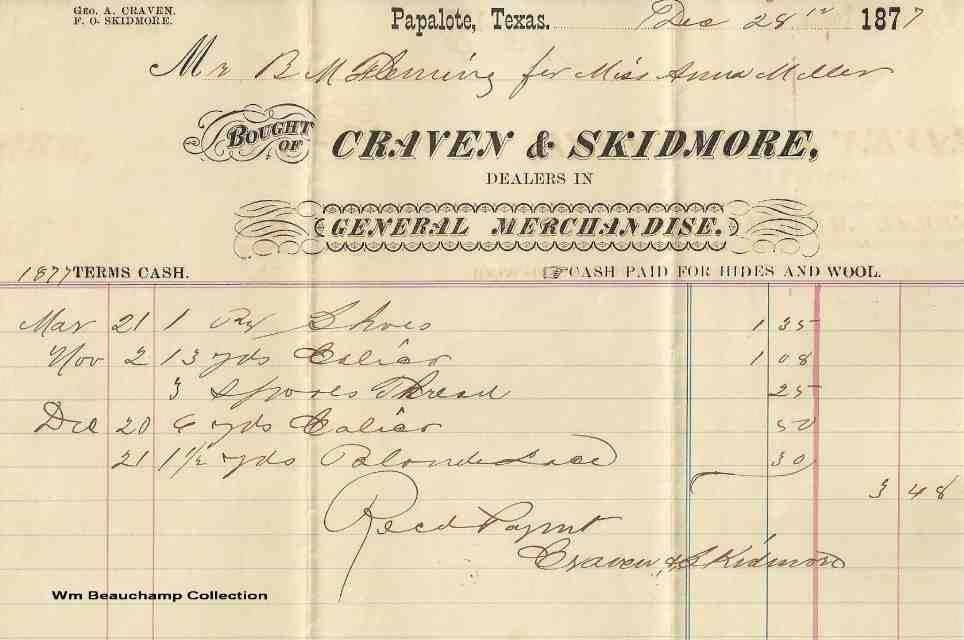 GEO. A. CRAVEN.
F. O. SKIDMORE.
Papalote, Texas. Dec 28th 1877
Mr B M Fleming for Miss Anna Miller
BOUGHT OF CRAVEN & SKIDMORE,
DEALERS IN
GENERAL MERCHANDISE.
1877 TERMS CASH. ☞CASH PAID FOR HIDES AND WOOL.
Mar 21 1 Pr Shoes 1 35
Nov 2 13 yds Calico 1 08
3 Spools Thread 25
Dec 20 6 yds Calico 50
21 1 1/2 yds Blonde Lace 30
3 48
Recd Paymt
Craven & Skidmore
Wm Beauchamp Collection